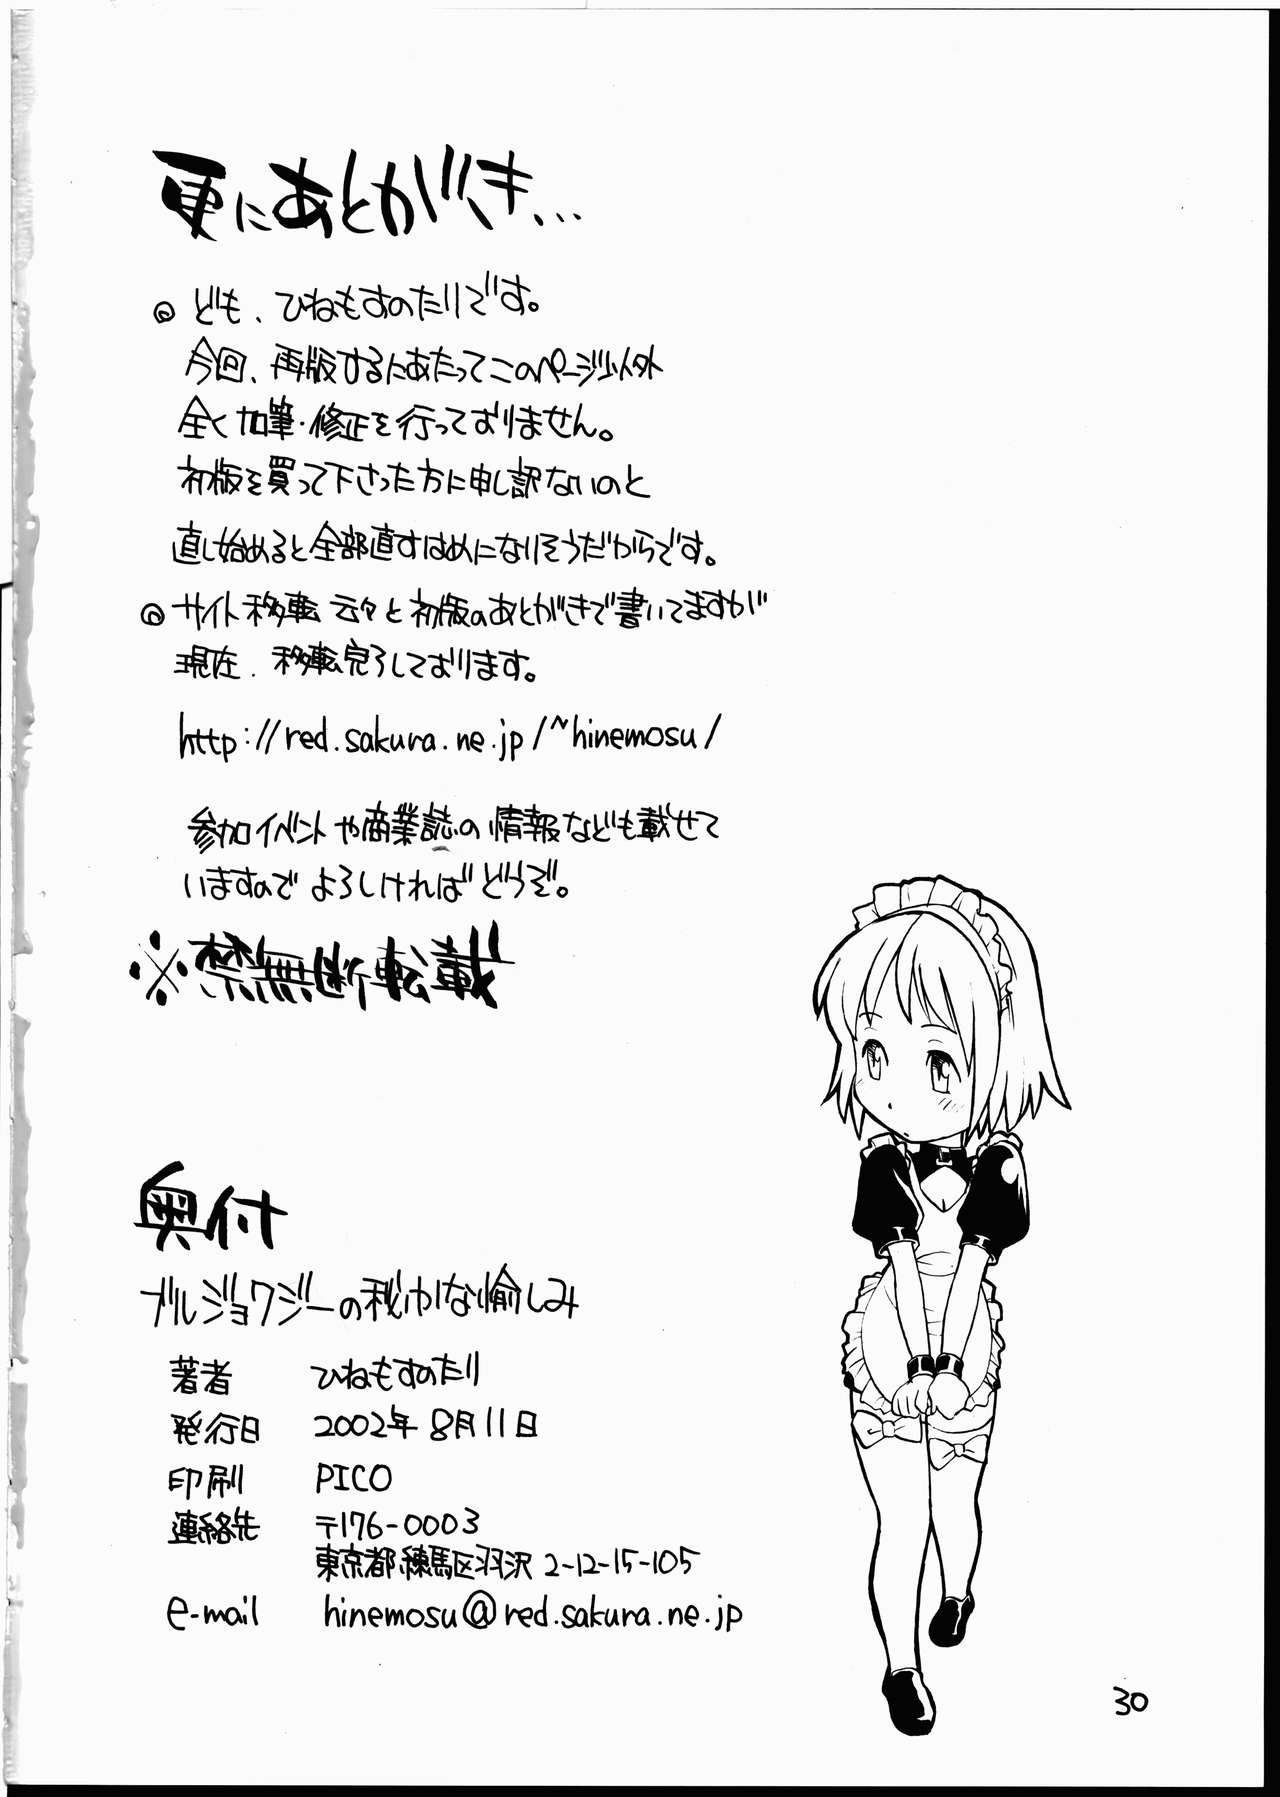 更にあとがき...
◎ ども、ひねもすのたりです。
今回、再版するにあたってこのページ以外
全く加筆・修正を行っておりません。
初版を買って下さった方に申し訳ないのと
直し始めると全部直すはめになりそうだからです。
◎ サイト移転云々と初版のあとがきで書いてますが
現在、移転完了しております。
http://red.sakura.ne.jp/~hinemosu/
参加イベントや商業誌の情報なども載せて
いますのでよろしければどうぞ。
※禁無断転載
奥付
ブルジョワジーの秘かな愉しみ
著者 ひねもすのたり
発行日 2002年8月11日
印刷 PICO
連絡先 〒176-0003
東京都練馬区羽沢2-12-15-105
e-mail hinemosu@red.sakura.ne.jp
30